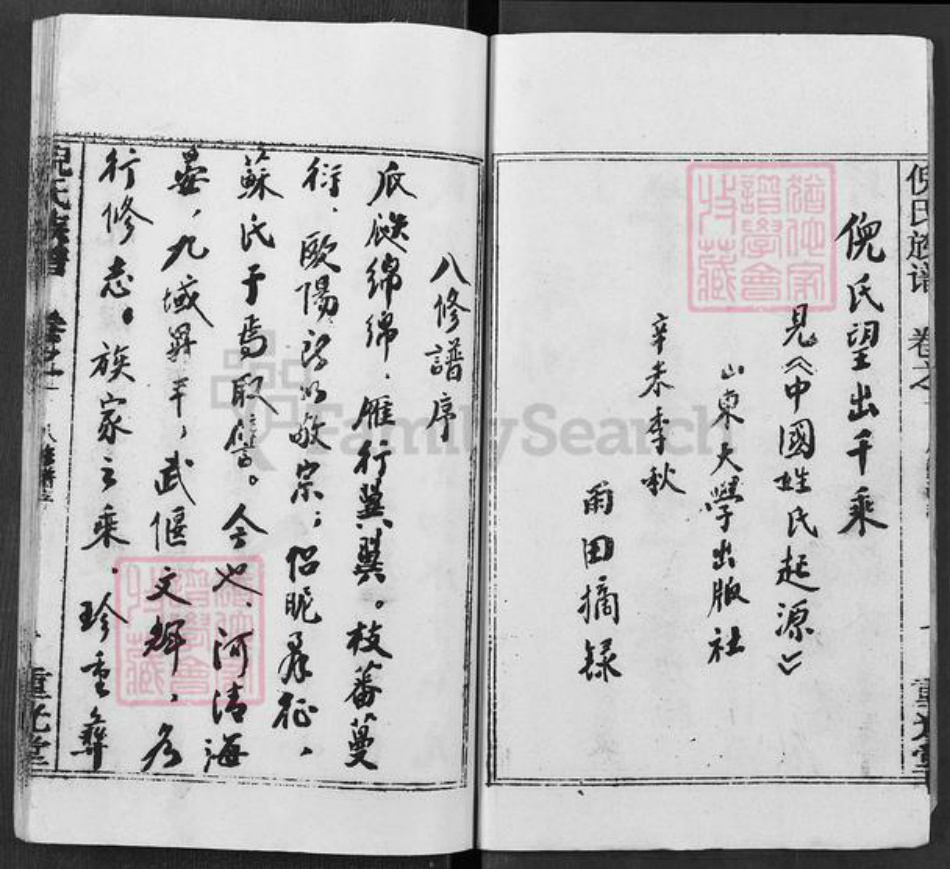 倪氏族譜
卷之
重光堂
倪氏望出千乘
見《中國姓氏起源》
山東大學出版社
辛未季秋
雨田摘録
八修譜序
瓜瓞綿綿，雁行翼翼。枝蕃蔓
衍，歐陽 敬宗；侶昵 征，
蘇氏于焉取譬。今也，河清海
晏，九域昇平，武偃文輝，各
行修志。族家之乘，珍重彝
倪氏族譜
卷之
八修譜序
重光堂
FamilySearch